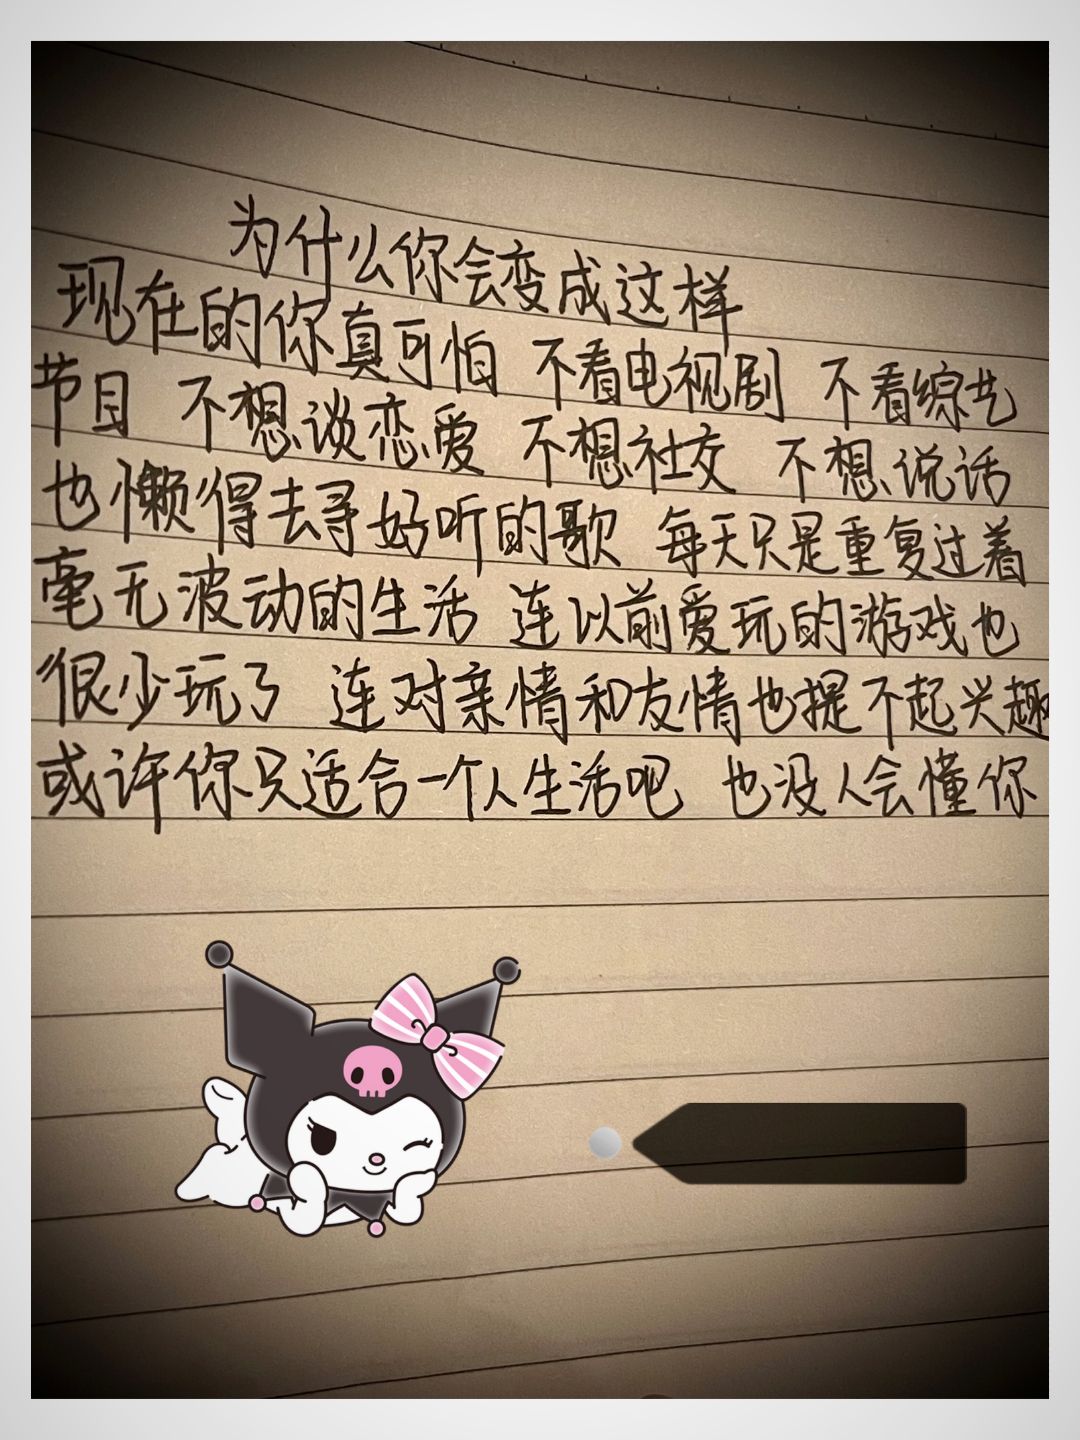 为什么你会变成这样
现在的你真可怕 不看电视剧 不看综艺
节目 不想谈恋爱 不想社交 不想说话
也懒得去寻好听的歌 每天只是重复过着
毫无波动的生活 连以前爱玩的游戏也
很少玩了 连对亲情和友情也提不起兴趣
或许你只适合一个人生活吧 也没人会懂你